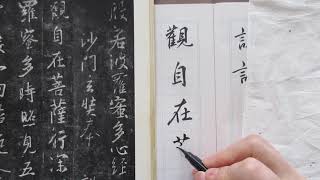 觀自在
般若波羅蜜多心經
沙門玄奘奉
觀自在菩薩行深
羅蜜多時照見五